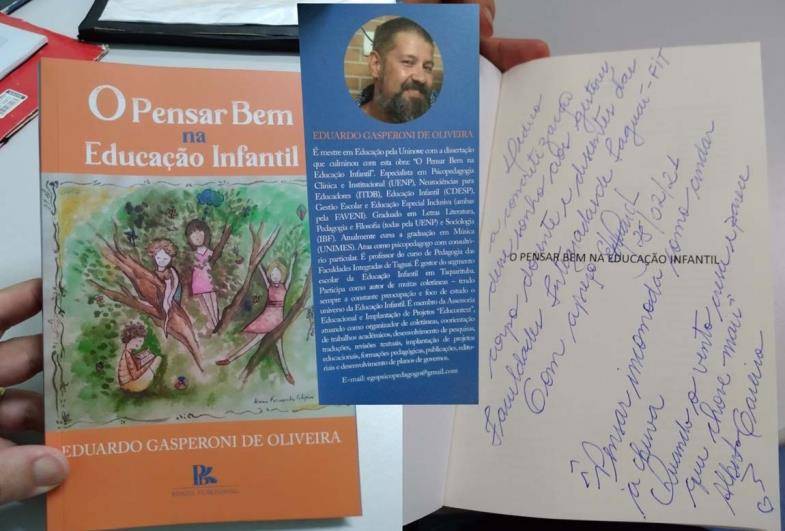 O Pensar Bem
na
Educação Infantil
EDUARDO GASPERONI DE OLIVEIRA
EDUARDO GASPERONI DE OLIVEIRA
É mestre em Educação pela Uninove com a dissertação
que culminou com esta obra: "O Pensar Bem na
Educação Infantil". Especialista em Psicopedagogia
Clínica e Institucional (UENP), Neurociências para
Educadores (ITDB), Educação Infantil (CDESP),
Gestão Escolar e Educação Especial Inclusiva (ambas
pela FAVENI). Graduado em Letras Literatura,
Pedagogia e Filosofia (todas pela UENP) e Sociologia
(IBF). Atualmente cursa a graduação em Música
(UNIMES). Atua como psicopedagogo com consultó-
rio particular. É professor do curso de Pedagogia das
Faculdades Integradas de Taguaí. É gestor do segmento
escolar da Educação Infantil em Taquarituba.
Participa como autor de muitas coletâneas – tendo
sempre a constante preocupação e foco de estudo o
universo da Educação Infantil. É membro da Assessoria
Educacional e Implantação de Projetos "Educonect",
atuando como organizador de coletâneas, coorientação
de trabalhos acadêmicos, desenvolvimento de pesquisas,
traduções, revisões textuais, implantação de projetos
educacionais, formações pedagógicas, publicação, edito-
riais e desenvolvimento de planos de governos.
E-mail: egopsicopedagogo@gmail.com
Dedico
a concretização
deste sonho aos gestores
corpo docente e discentes das
Faculdades Integradas de Taguaí-FIT
Com apreço
25/02/21
O PENSAR BEM NA EDUCAÇÃO INFANTIL
"Pensar incomoda como andar
à chuva
Quando o vento cresce e parece
que chove mais"
Alberto Caeiro